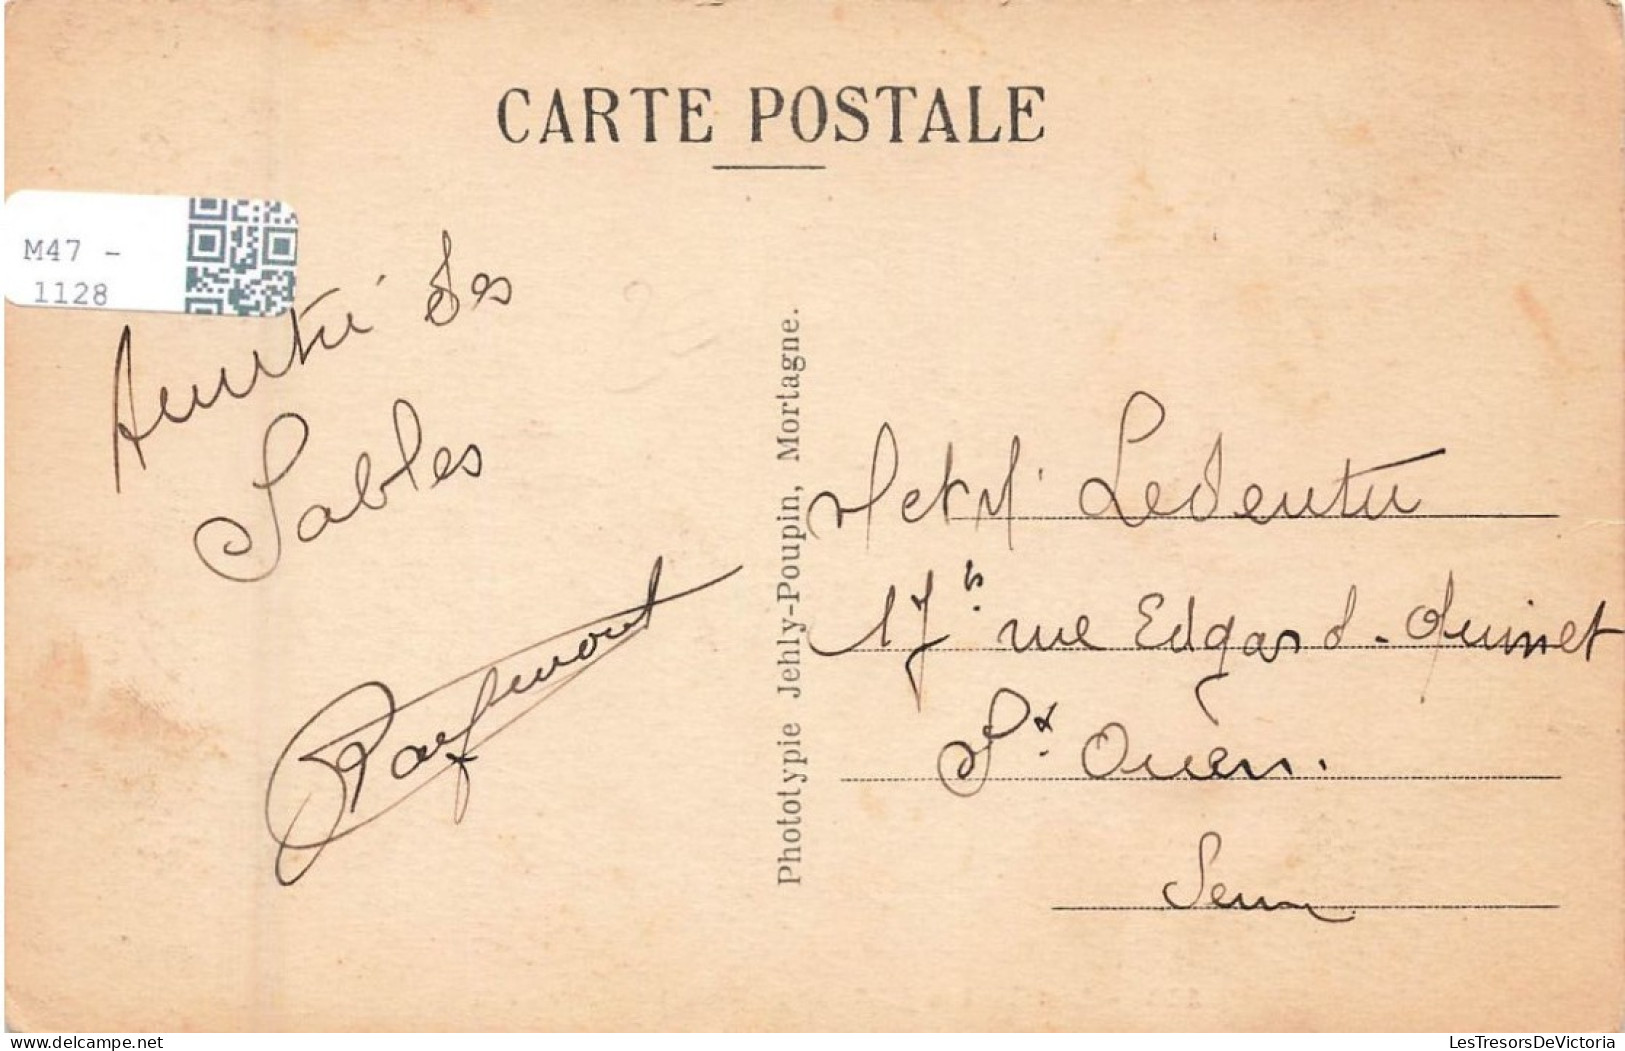 CARTE POSTALE
M47 -
1128
Amitié des
Sables
Phototypie Jehly-Poupin, Mortagne.
M et Mme Ledentu
17 bis rue Edgard-Quinet
St. Ouen.
Seine
www.delcampe.net
LesTresorsDeVictoria